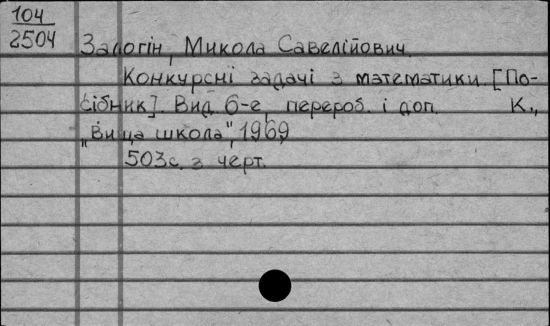 104
2504
Залогін, Микола Савелійович.
Конкурсні задачі з математики. [По-
сібник]. Вид. 6-е, перероб. і доп. К.,
„Вища школа", 1969
503с. з черт.